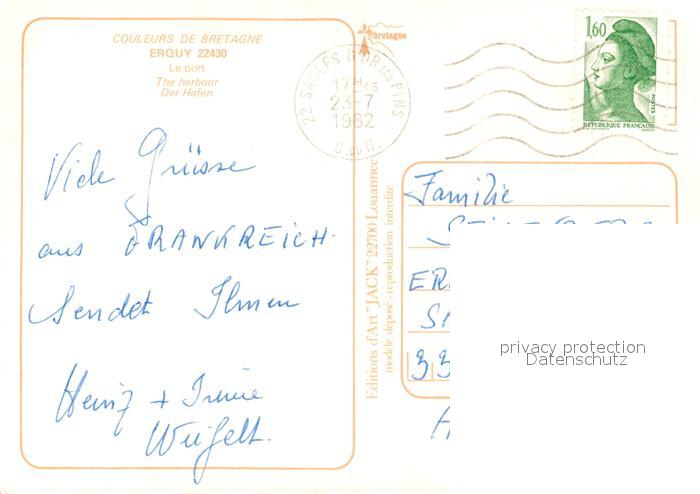 COULEURS DE BRETAGNE
ERQUY 22430
Le port
The harbour
Der Hafen
Viele Grüsse
aus FRANKREICH.
Sendet Ihnen
Heinz + Irene
Weigelt.
bretagne
22 SABLES D'OR LES PINS
17H15
23-7
1982
C. DU N.
1,60
POSTES
REPUBLIQUE FRANÇAISE
Editions d'Art "JACK" 22700 Louannec
modèle déposé - reproduction interdite
Familie
ER
33
privacy protection
Datenschutz